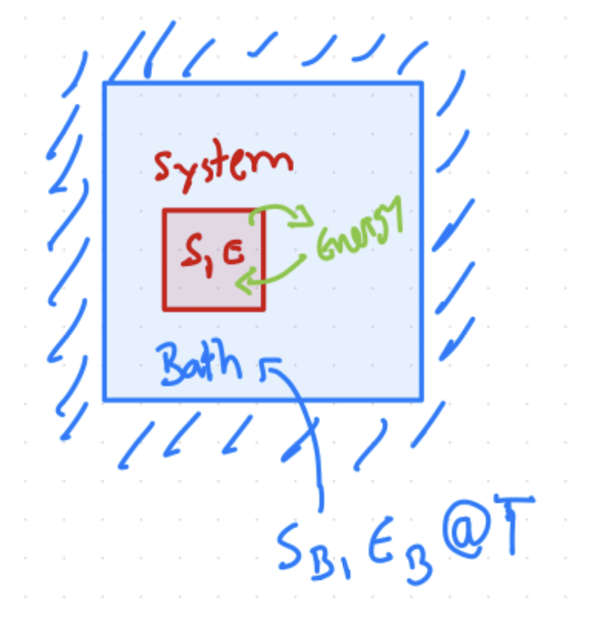 System
S, E
Energy
Bath
S_B, E_B @T